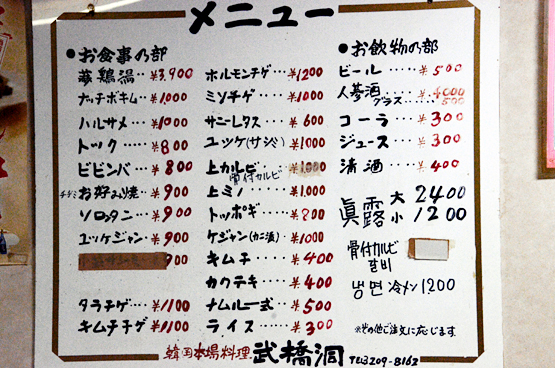 メニュー
●お食事の部
蔘鶏湯‥¥3,900
ナッチポキム‥¥1,000
ハルサメ‥¥1000
トック‥‥¥800
ビビンバ‥¥800
チヂミ お好み焼‥¥900
ソロンタン‥¥900
ユッケジャン‥¥900
900
タラチゲ‥¥1100
キムチチゲ‥¥1100
ホルモンチゲ‥¥1200
ミソチゲ‥‥¥1000
サニーレタス‥¥600
ユッケ(サシミ)¥1000
上カルビ‥¥1,000
骨付カルビ
上ミノ‥‥¥1.000
トッポギ‥‥¥800
ケジャン(カニ漬)¥1000
キムチ‥‥¥400
カクテキ‥‥¥400
ナムル一式‥¥500
ライス‥‥¥300
●お飲物の部
ビール‥‥¥500
人蔘酒‥‥¥4000
グラス‥‥500
コーラ‥‥¥300
ジュース‥‥¥300
清酒‥‥¥400
眞露 大 2400
小 1200
骨付カルビ
갈비
냉면 冷メン 1200
※その他ご注文に応じます。
韓国本場料理 武橋洞 TEL3209-8162